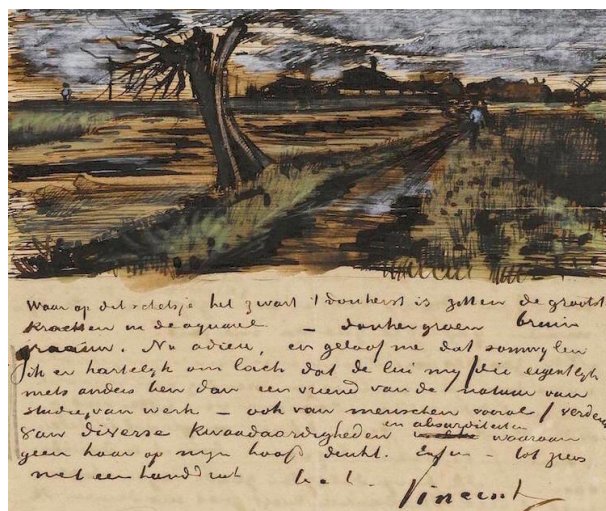 Waar op dit schetsje het zwart 't donkerst is zitten de grootst
krachten in de aquarel — donkergroen bruin
graauw. Nu adieu, en geloof me dat somwylen
ik er hartelyk om lach dat de lui my / die eigentlyk
niets anders ben dan een vriend van de natuur van
studie, van werk — ook van menschen vooral / verdenk
van diverse kwaadaardigheden en absurditeiten waaraan
geen haar op myn hoofd denkt. Enfin — tot ziens
met een handdruk
Vincent